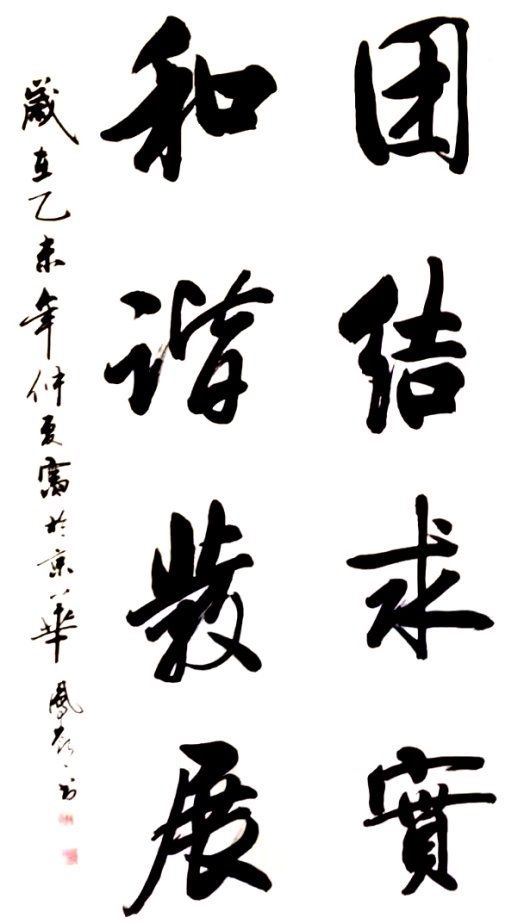 团结求實
和谐發展
歲在乙未年仲夏寫於京華